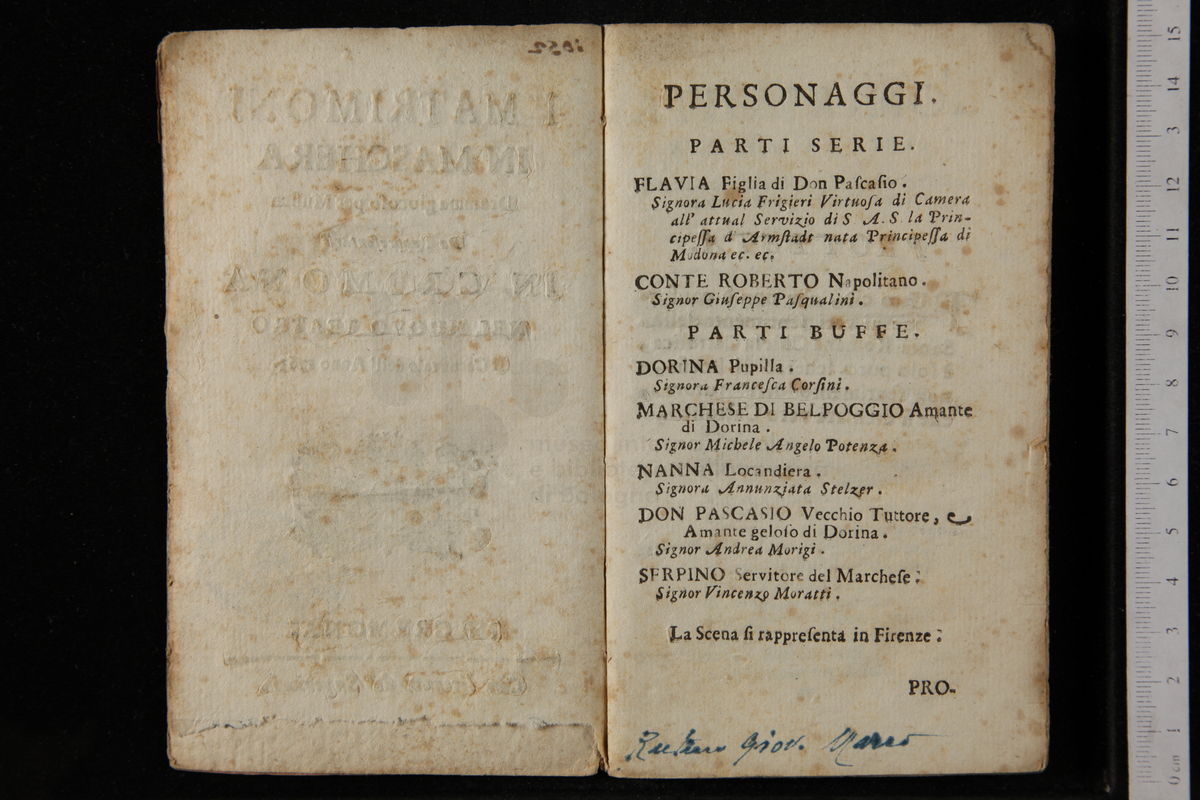 I MATRIMONI
IN MASCHERA
IN CREMONA
PERSONAGGI.
PARTI SERIE.
FLAVIA Figlia di Don Paſcaſio.
Signora Lucia Frigieri Virtuoſa di Camera
all' attual Servizio di S A. S la Prin-
cipeſſa d Armſtadt nata Principeſſa di
Modona ec. ec.
CONTE ROBERTO Napolitano.
Signor Giuſeppe Paſqualini.
PARTI BUFFE.
DORINA Pupilla.
Signora Franceſca Corſini.
MARCHESE DI BELPOGGIO Amante
di Dorina.
Signor Michele Angelo Potenza.
NANNA Locandiera.
Signora Annunziata Stelzer.
DON PASCASIO Vecchio Tuttore, e
Amante geloſo di Dorina.
Signor Andrea Morigi.
SERPINO Servitore del Marcheſe:
Signor Vincenzo Moratti.
La Scena ſi rappreſenta in Firenze:
PRO-
Giov. Marco
0 cm 1 2 3 4 5 6 7 8 9 10 11 12 3 14 15